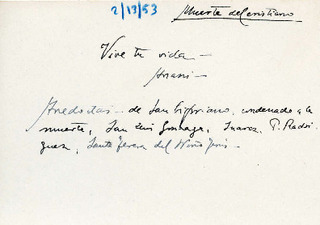 2/13/53
Muerte del cristiano
Vive tu vida –
Anécdotas – de San Cipriano, condenado a la
muerte, San Luis Gonzaga, Suarez, P. Rodri
guez, Santa Teresa del Niño Jesús –